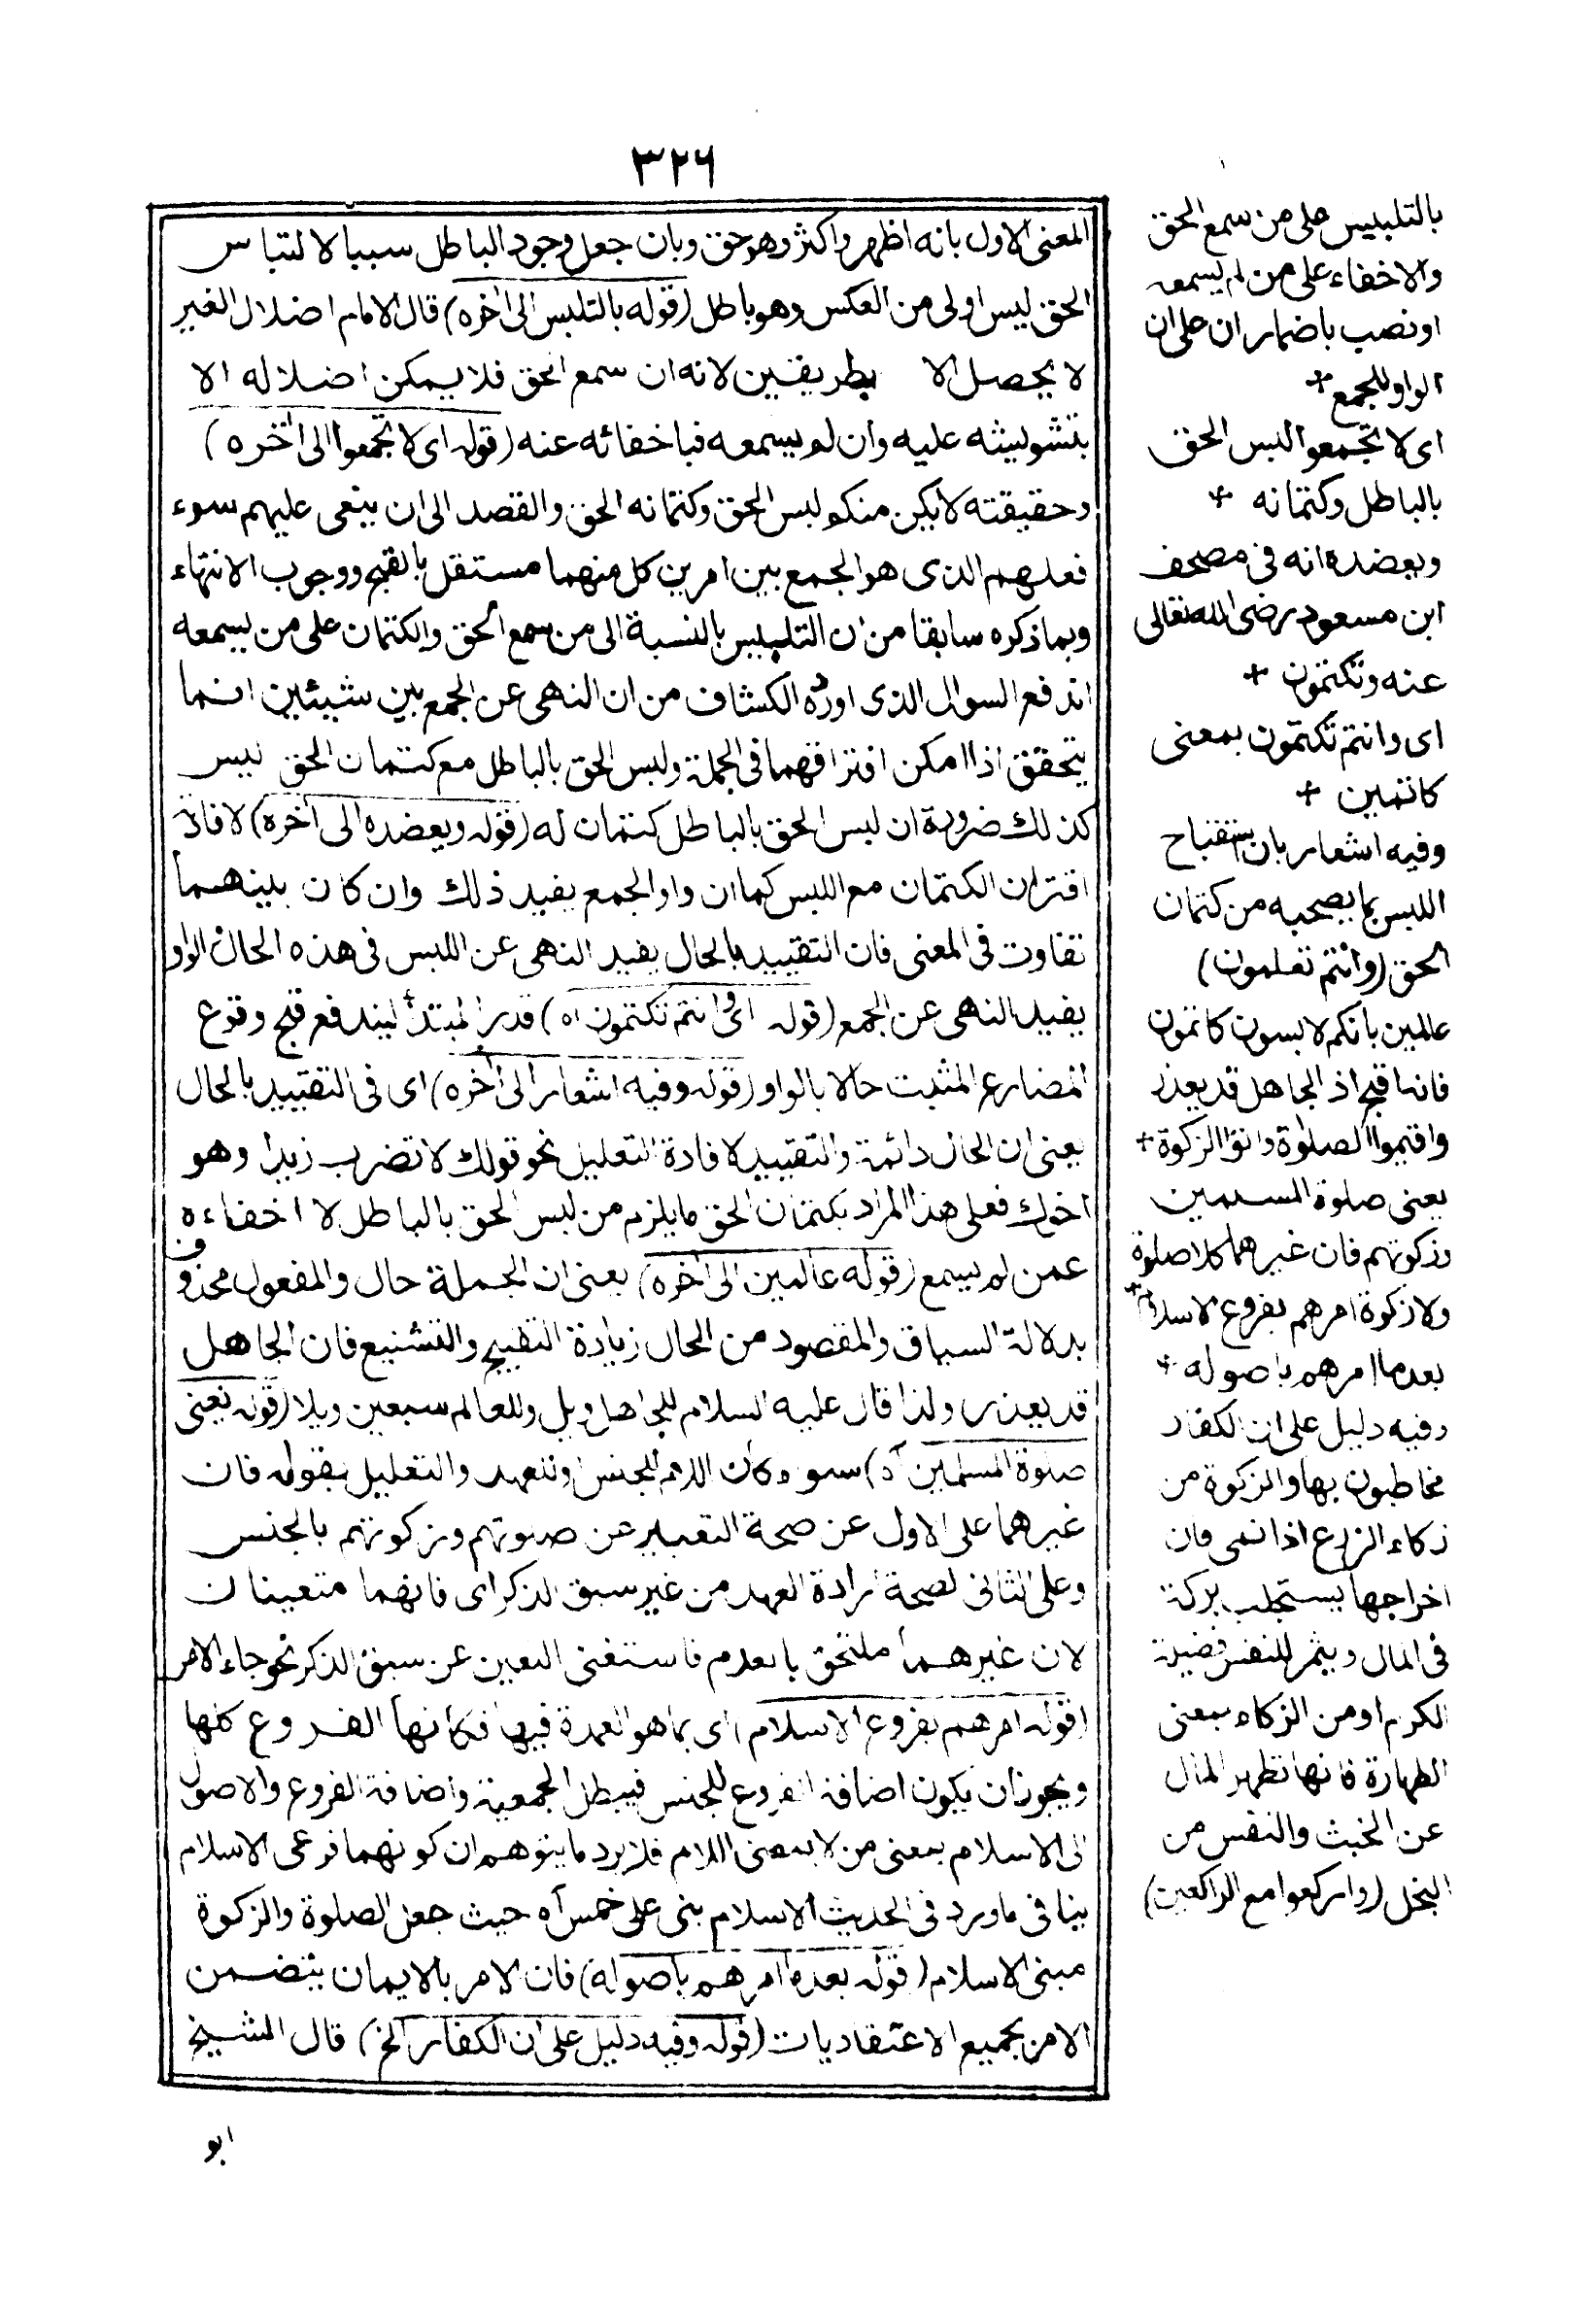 ٣٢٦
المعنى الاول بانه اظهر واكثر وهو حق وبان جعل وجود الباطل سببا لالتباس
الحق ليس اولى من العكس وهو باطل (قوله بالتلبس الى اخره) قال الامام اضلال الغير
لا يحصل الا بطريقين لانه ان سمع الحق فلا يمكن اضلاله الا
بتشويشه عليه وان لم يسمعه فباخفائه عنه (قوله اى لا تجمعوا الى اخره)
وحقيقته لا يكن منكم لبس الحق وكتمانه الحق والقصد الى ان ينعى عليهم سوء
فعلهم الذى هو الجمع بين امرين كل منهما مستقل بالقبح ووجوب الانتهاء
وبما ذكره سابقا من ان التلبيس بالنسبة الى من سمع الحق والكتمان على من يسمعه
اندفع السوال الذى اورده الكشاف من ان النهى عن الجمع بين شيئين انما
يتحقق اذا امكن افتراقهما فى الجملة ولبس الحق بالباطل مع كتمان الحق ليس
كذلك ضرورة ان لبس الحق بالباطل كتمان له (قوله ويعضده الى اخره) لافادة
اقتران الكتمان مع اللبس كما ان واو الجمع يفيد ذلك وان كان بينهما
تفاوت فى المعنى فان التقييد بالحال يفيد النهى عن اللبس فى هذه الحال والواو
يفيد النهى عن الجمع (قوله اى وانتم تكتمون اه) قدر المبتدأ ليندفع قبح وقوع
المضارع المثبت حالا بالواو (قوله وفيه اشعار الى اخره) اى فى التقييد بالحال
يعنى ان الحال دائمة والتقييد لافادة التعليل نحو قولك لا تضرب زيدا وهو
اخوك فعلى هذا المراد بكتمان الحق ما يلزم من لبس الحق بالباطل لا اخفاءه
عمن لم يسمع (قوله عالمين الى اخره) يعنى ان الجملة حال والمفعول محذوف
بدلالة السياق والمقصود من الحال زيادة التقبيح والتشنيع فان الجاهل
قد يعذر ولذا قال عليه السلام للجاهل ويل وللعالم سبعين ويلا (قوله يعنى
صلوة المسلمين اه) سواء كان اللام للجنس او للعهد والتعليل بقوله فان
غيرهما على الاول عن صحة التعبير عن صلوتهم وزكوتهم بالجنس
وعلى الثانى لصحة ارادة العهد من غير سبق الذكر اى فانهما متعينان
لان غيرهما ملتحق بالعدم فاستغنى التعين عن سبق الذكر نحو جاء الامر
(قوله امرهم بفروع الاسلام) اى بما هو العمدة فيها فكانها الفروع كلها
ويجوز ان يكون اضافة الفروع للجنس فيبطل الجمعية واضافة الفروع والاصول
الى الاسلام بمعنى من لا بمعنى اللام فلا يرد ما يتوهم ان كونهما فرعى الاسلام
ينافى ما ورد فى الحديث الاسلام بنى على خمس اه حيث جعل الصلوة والزكوة
مبنى الاسلام (قوله بعد ما امرهم باصوله) فان الامر بالايمان يتضمن
الامر بجميع الاعتقاديات (قوله وفيه دليل على ان الكفار الخ) قال الشيخ
ابو
بالتلبيس على من سمع الحق
والاخفاء على من لم يسمعه
او نصب باضمار ان على ان
الواو للجمع +
اى لا تجمعوا لبس الحق
بالباطل وكتمانه +
ويعضده انه فى مصحف
ابن مسعود رضى الله تعالى
عنه وتكتمون +
اى وانتم تكتمون بمعنى
كاتمين +
وفيه اشعار بان استقباح
اللبس بما يصحبه من كتمان
الحق (وانتم تعلمون)
عالمين بانكم لابسون كاتمون
فانه اقبح اذ الجاهل قد يعذر
واقيموا الصلوة واتوا الزكوة +
يعنى صلوة المسلمين
وزكوتهم فان غيرهما كلا صلوة
ولا زكوة امرهم بفروع الاسلام +
بعد ما امرهم باصوله +
وفيه دليل على ان الكفار
مخاطبون بها والزكوة من
زكاء الزرع اذا نمى فان
اخراجها يستجلب بركة
فى المال ويثمر للنفس فضيلة
الكرم او من الزكاء بمعنى
الطهارة فانها تطهر المال
عن الخبث والنفس من
البخل (واركعوا مع الراكعين)